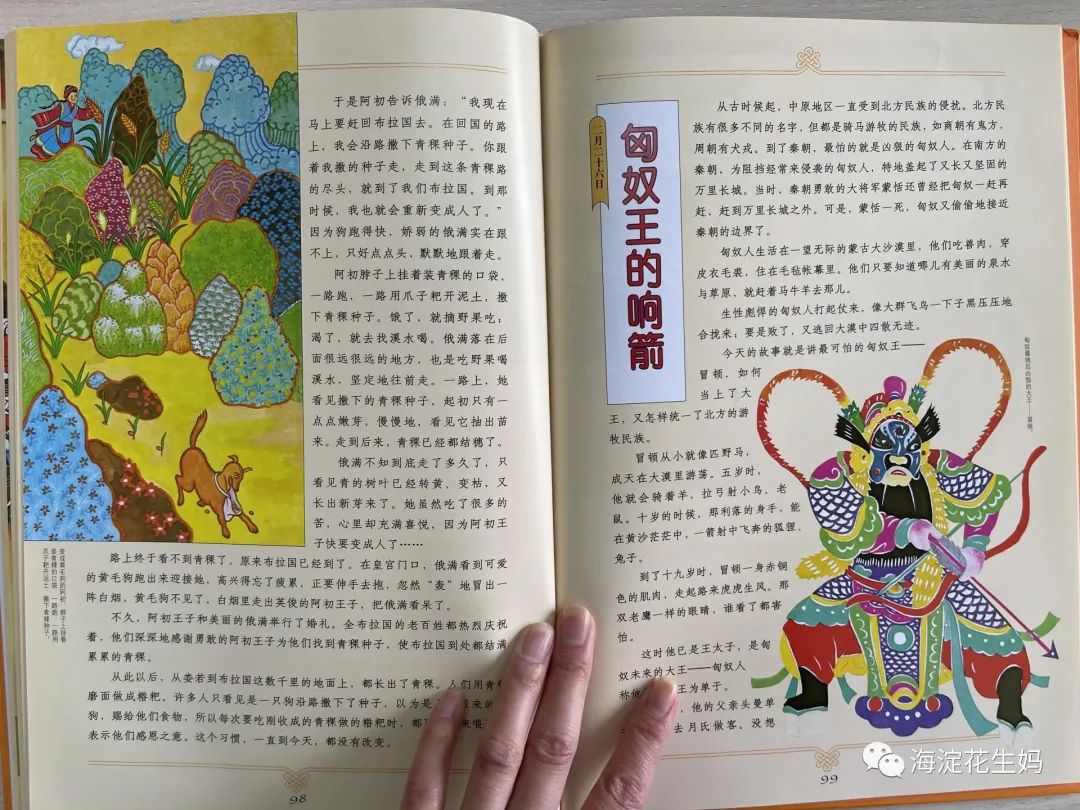 于是阿初告诉俄满：“我现在
马上要赶回布拉国去。在回国的路
上，我会沿路撒下青稞种子。你跟
着我撒的种子走，走到这条青稞路
的尽头，就到了我们布拉国。到那
时候，我也就会重新变成人了。”
因为狗跑得快，娇弱的俄满实在跟
不上，只好点点头，默默地跟着走。
阿初脖子上挂着装青稞的口袋，
一路跑，一路用爪子耙开泥土，撒
下青稞种子。饿了，就摘野果吃；
渴了，就去找溪水喝。俄满落在后
面很远很远的地方，也是吃野果喝
溪水，坚定地往前走。一路上，她
看见撒下的青稞种子，起初只有一
点点嫩芽，慢慢地，看见它抽出苗
来。走到后来，青稞已经都结穗了。
俄满不知到底走了多久了，只
看见青的树叶已经转黄、变枯，又
长出新芽来了。她虽然吃了很多的
苦，心里却充满喜悦，因为阿初王
子快要变成人了……
路上终于看不到青稞了，原来布拉国已经到了。在皇宫门口，俄满看到可爱
的黄毛狗跑出来迎接她，高兴得忘了疲累，正要伸手去抱，忽然“轰”地冒出一
阵白烟，黄毛狗不见了，白烟里走出英俊的阿初王子，把俄满看呆了。
不久，阿初王子和美丽的俄满举行了婚礼。全布拉国的老百姓都热烈庆祝
着，他们深深地感谢勇敢的阿初王子为他们找到青稞种子，使布拉国到处都结满
累累的青稞。
从此以后，从娄若到布拉国这数千里的地面上，都长出了青稞。人们用青稞
磨面做成糌粑。许多人只看见是一只狗沿路撒下了种子，以为是
派来的
狗，赐给他们食物，所以每次要吃刚收成的青稞做的糌粑时，都
来喂
表示他们感恩之意。这个习惯，一直到今天，都没有改变。
变成黄毛狗的阿初，脖子上挂着
装青稞的口袋，一路跑，一路用
爪子耙开泥土，撒下青稞种子。
98
二月二十六日
匈奴王的响箭
从古时候起，中原地区一直受到北方民族的侵扰。北方民
族有很多不同的名字，但都是骑马游牧的民族，如商朝有鬼方，
周朝有犬戎。到了秦朝，最怕的就是凶狠的匈奴人。在南方的
秦朝，为阻挡经常来侵袭的匈奴人，特地盖起了又长又坚固的
万里长城。当时，秦朝勇敢的大将军蒙恬还曾经把匈奴一赶再
赶，赶到万里长城之外。可是，蒙恬一死，匈奴又偷偷地接近
秦朝的边界了。
匈奴人生活在一望无际的蒙古大沙漠里，他们吃兽肉，穿
皮衣毛裘，住在毛毡帐幕里。他们只要知道哪儿有美丽的泉水
与草原，就赶着马牛羊去那儿。
生性彪悍的匈奴人打起仗来，像大群飞鸟一下子黑压压地
合拢来；要是败了，又逃回大漠中四散无迹。
今天的故事就是讲最可怕的匈奴王——
冒顿，如何
当上了大
王，又怎样统一了北方的游
牧民族。
冒顿从小就像匹野马，
成天在大漠里游荡。五岁时，
他就会骑着羊，拉弓射小鸟、老
鼠。十岁的时候，那利落的身手，能
在黄沙茫茫中，一箭射中飞奔的狐狸、
兔子。
到了十九岁时，冒顿一身赤铜
色的肌肉，走起路来虎虎生风。那
双老鹰一样的眼睛，谁看了都害
怕。
这时他已是王太子，是匈
奴未来的大王——匈奴人
称他
王为单于。
，他的父亲头曼单
去月氏做客。没想
匈奴最残忍凶狠的大王——冒顿。
99
海淀花生妈